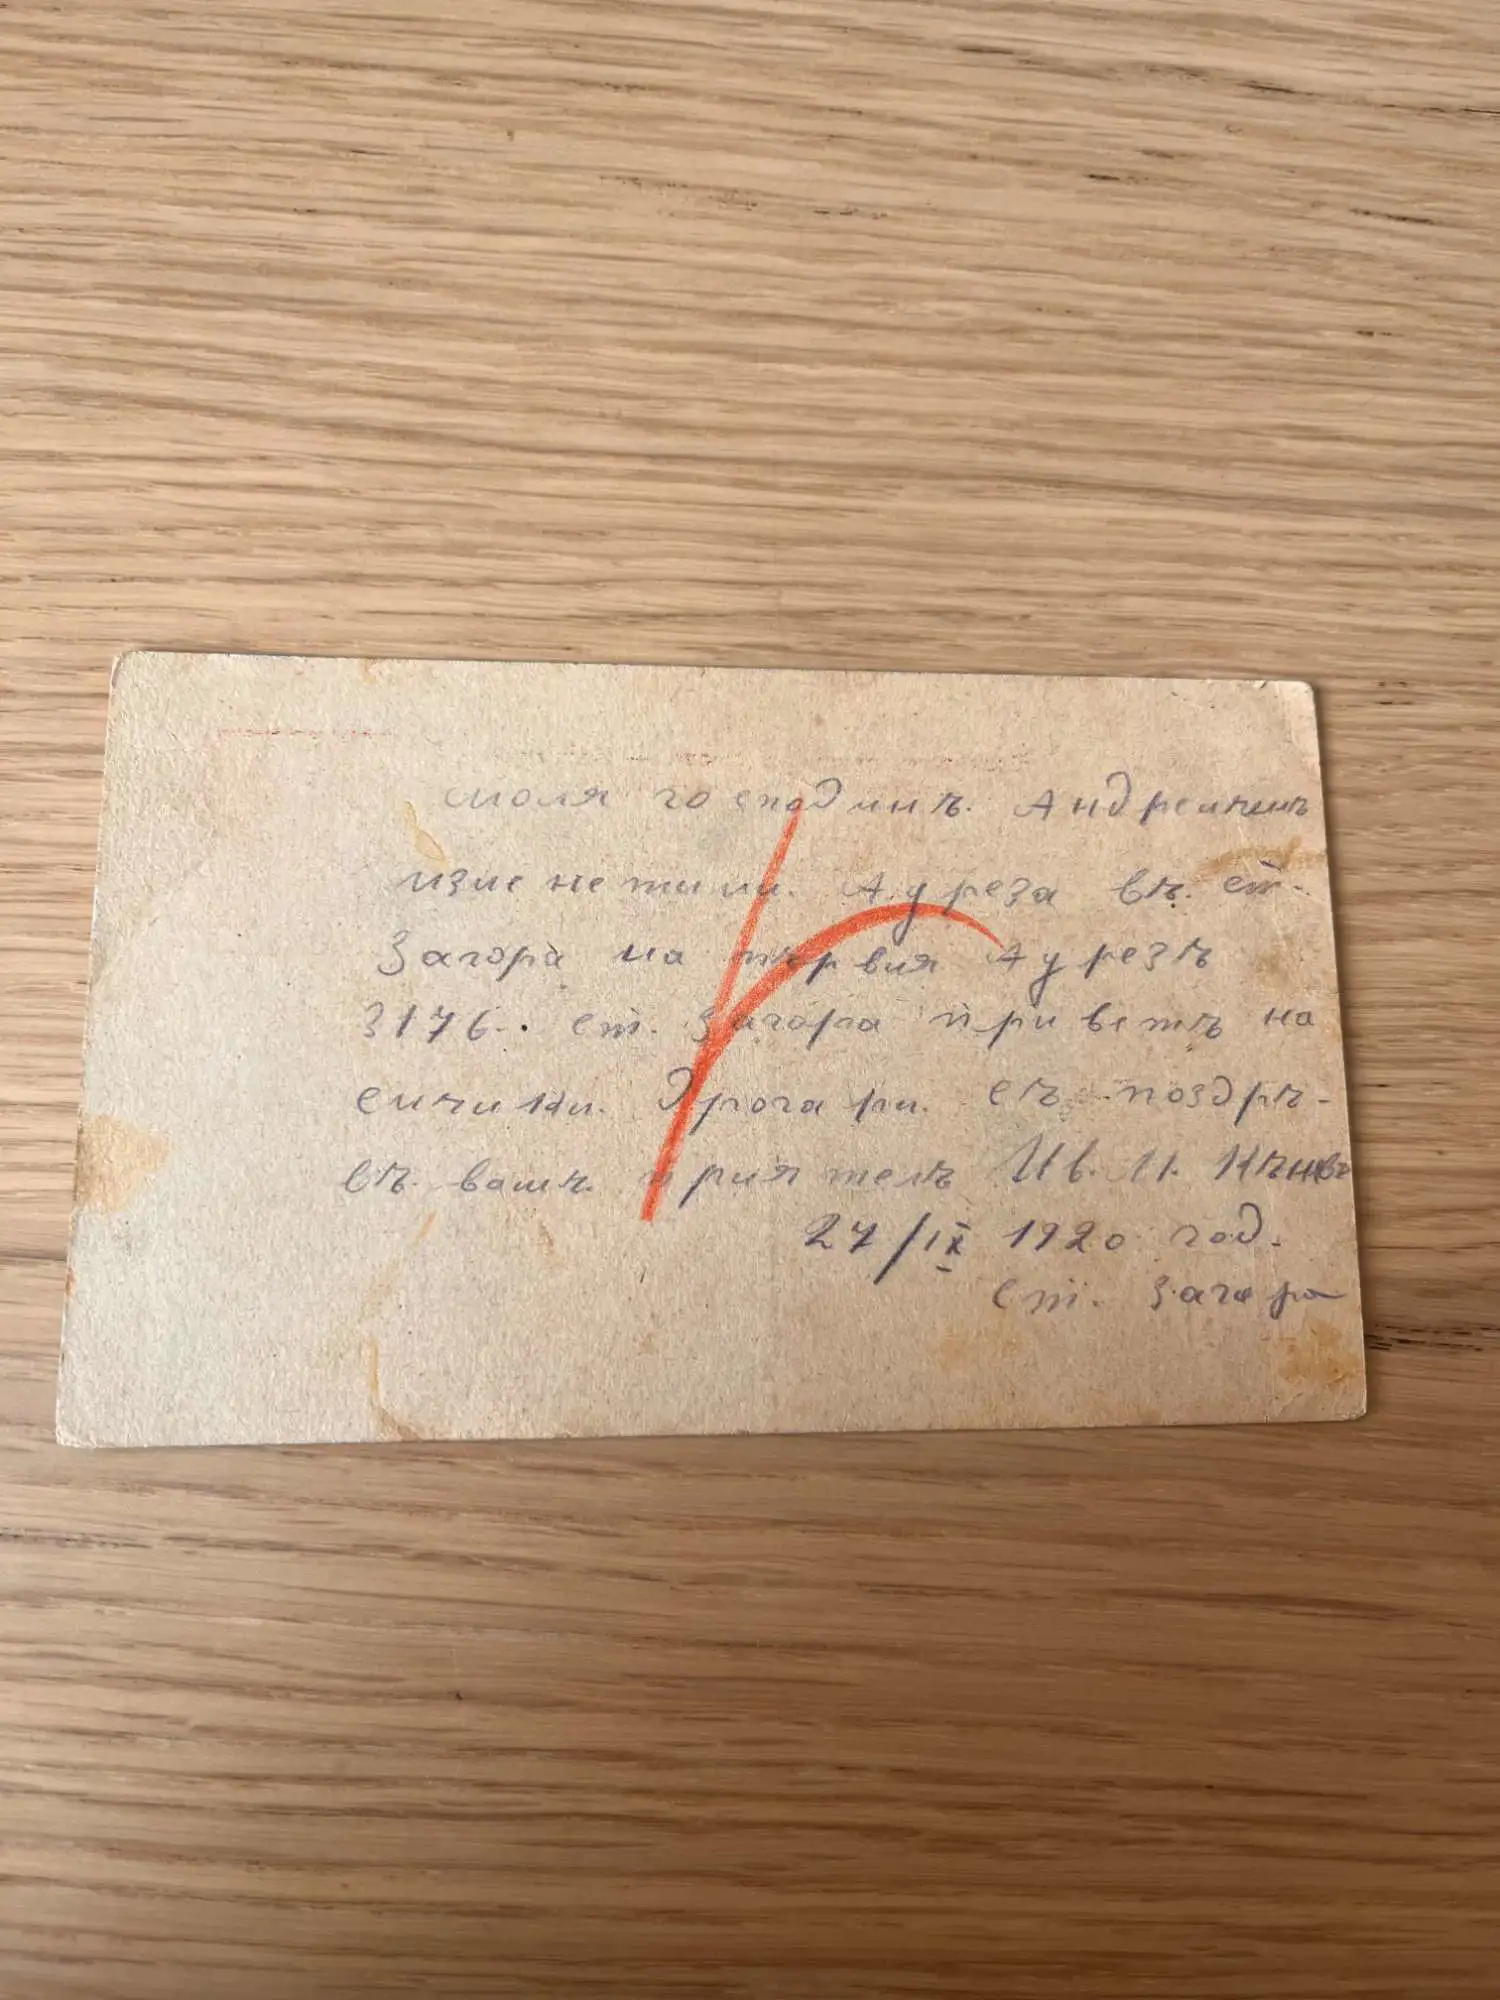 моля господинъ. Андрейчинъ
измененили. Адреза въ. ст.
Загора на първия Адрезъ
3176. ст. Загора приветъ на
сички. Другари. съ поздръ-
въ. вашъ. приятелъ Ив. И. Кънвъ
27/IX 1920 год.
ст. Загора